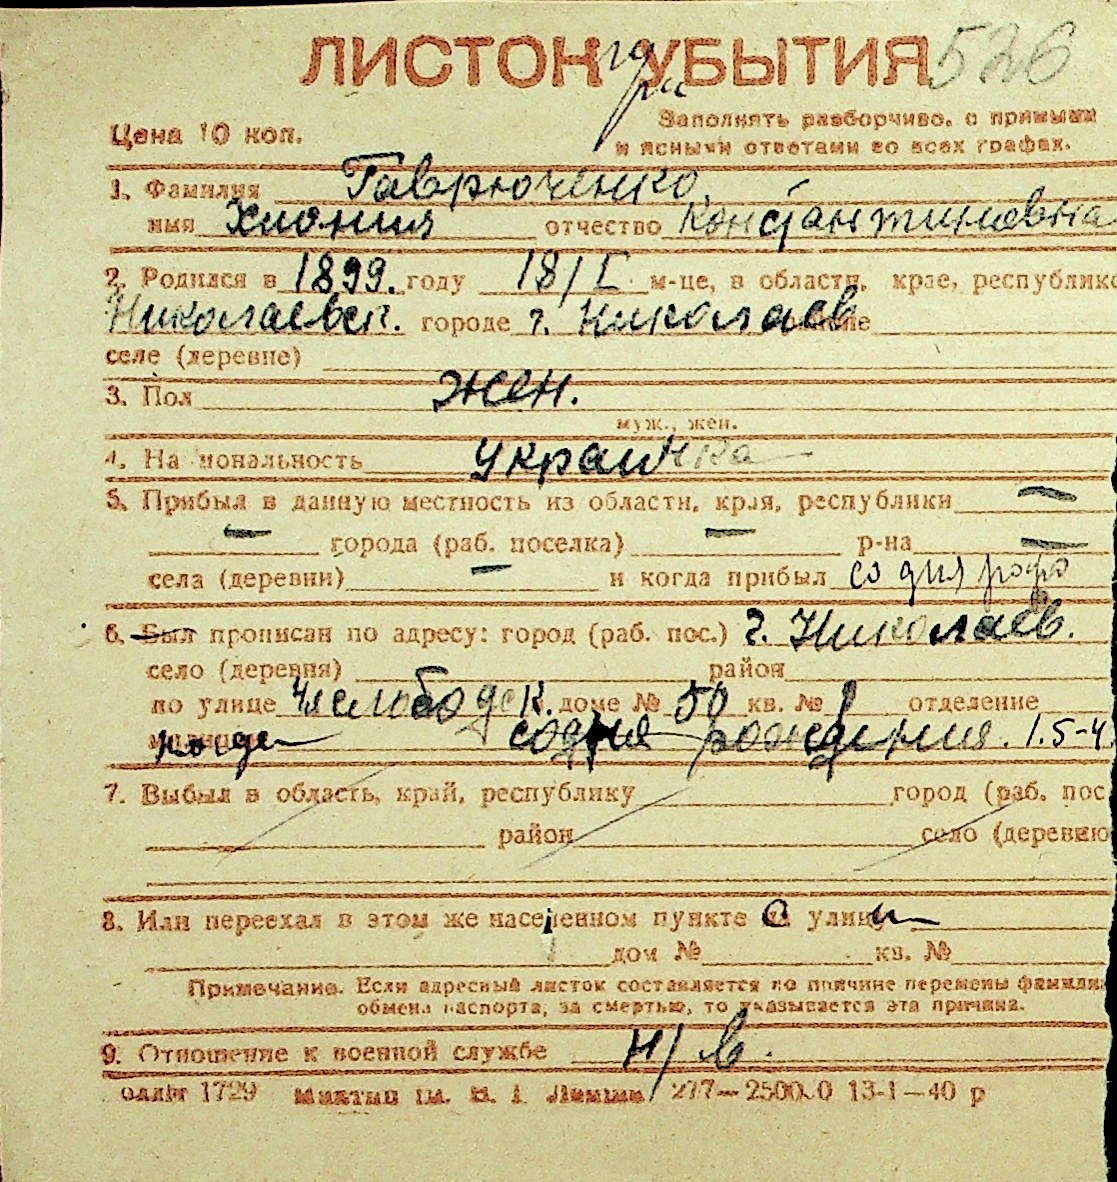 ЛИСТОК УБЫТИЯ 526
Цена 10 коп.
Заполнять разборчиво, с прямыми
и ясными ответами во всех графах.
1. Фамилия Гаврюченко
имя Хиония отчество Константиновна
2. Родился в 1899. году 18/I м-це, в области, крае, республике
Николаевск. городе г. Николаев
селе (деревне)
3. Пол жен.
муж., жен.
4. Национальность украинка
5. Прибыл в данную местность из области, края, республики —
— города (раб. поселка) — р-на —
села (деревни) — и когда прибыл со дня рожд
6. Был прописан по адресу: город (раб. пос.) г. Николаев.
село (деревня) район
по улице 4 слободск. доме № 50 кв. № отделение
со дня рождения. 1.5-4
7. Выбыл в область, край, республику город (раб. пос
район село (деревню
8. Или переехал в этом же населенном пункте с улицы
дом № кв. №
Примечание. Если адресный листок составляется по причине перемены фамилии
обмена паспорта, за смертью, то указывается эта причина.
9. Отношение к военной службе н/в.
облліт 1729 им. В. І. Леніна 277—25000 13-1—40 р